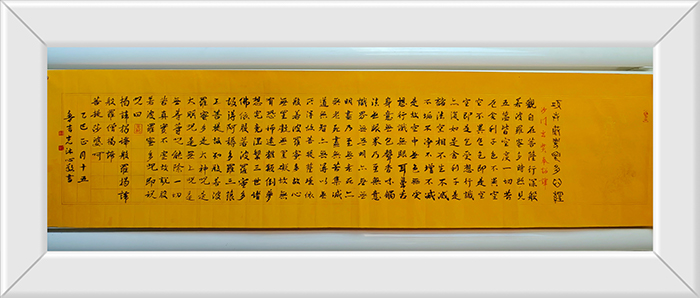 般若波羅蜜多心經
沙門玄奘奉詔譯
觀自在菩薩行深般
若波羅蜜多時照見
五蘊皆空度一切苦
厄舍利子色不異空
空不異色色即是空
空即是色受想行識
亦復如是舍利子是
諸法空相不生不滅
不垢不淨不增不減
是故空中無色無受
想行識無眼耳鼻舌
身意無色聲香味觸
法無眼界乃至無意
識界無無明亦無無
明盡乃至無老死亦
無老死盡無苦集滅
道無智亦無得以無
所得故菩提薩埵依
般若波羅蜜多故心
無罣礙無罣礙故無
有恐怖遠離顛倒夢
想究竟涅槃三世諸
佛依般若波羅蜜多
故得阿耨多羅三藐
三菩提故知般若波
羅蜜多是大神咒是
大明咒是無上咒是
無等等咒能除一切
苦真實不虛故說般
若波羅蜜多咒即說
咒曰
揭諦揭諦般羅揭諦
般羅僧揭諦
菩提莎婆呵
乙巳正月十五
沐心敬書